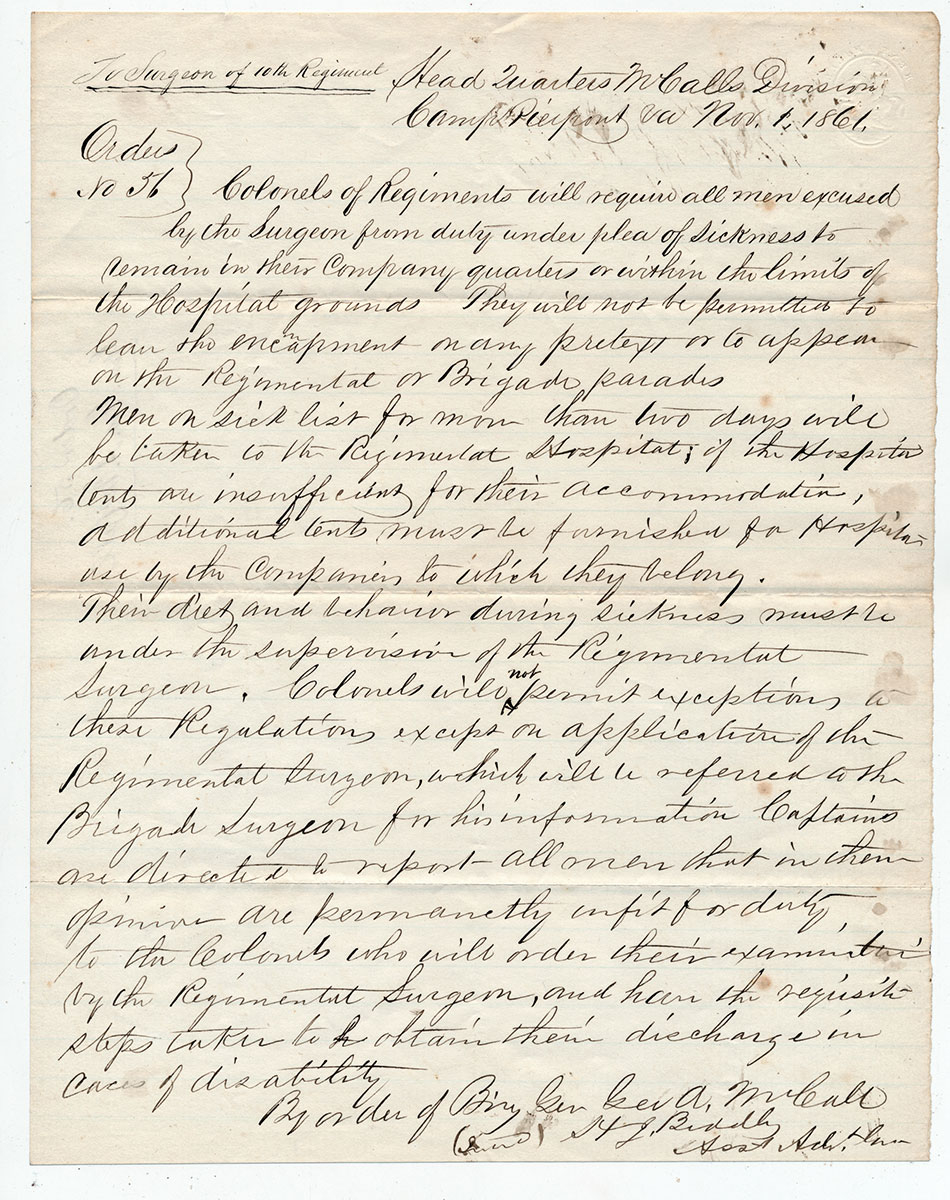 To Surgeon of 10th Regiment
Head Quarters McCalls Division
Camp Pierpont Va Nov. 1, 1861.
Orders
No 56
Colonels of Regiments will require all men excused
by the Surgeon from duty under plea of sickness to
remain in their Company quarters or within the limits of
the Hospital grounds They will not be permitted to
leave the encampment on any pretext or to appear
on the Regimental or Brigade parades
Men on sick list for more than two days will
be taken to the Regimental Hospital; if the Hospital
tents are insufficient for their accommodation,
additional tents must be furnished for Hospital
use by the Companies to which they belong.
Their diet and behavior during sickness must be
under the supervision of the Regimental
Surgeon. Colonels will not permit exceptions to
these Regulations except on application of the
Regimental Surgeon, which will be referred to the
Brigade Surgeon for his information Captains
are directed to report all men that in their
opinion are permanetly unfit for duty
to the Colonels who will order their examination
by the Regimental Surgeon, and have the requisite
steps taken to obtain their discharge in
cases of disability
By order of Brig Gen Geo A. McCall
(Signed) H J. Biddle
Asst Adjt Gen